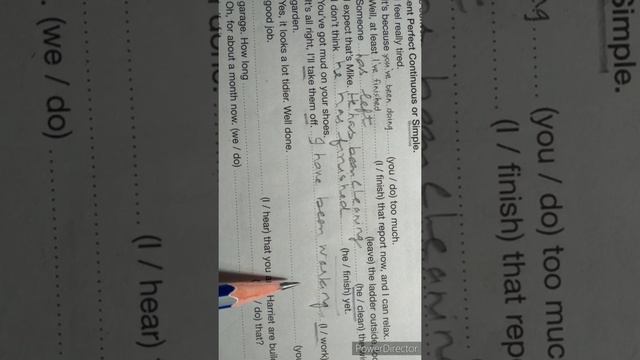 ent Perfect Continuous or Simple.
I feel really tired.
It's because you've been doing (you / do) too much.
Well, at least I've finished (I / finish) that report now, and I can relax.
Someone has left (leave) the ladder outside
I expect that's Mike. He has been cleaning (he / clean) th
I don't think he has finished (he / finish) yet.
You've got mud on your shoes.
It's all right, I'll take them off. I have been working (I / work)
garden.
Yes, it looks a lot tidier. Well done. (you
good job.
(I / hear) that you a Harriet are buil
garage. How long / do) that?
Oh, for about a month now. (we / do)
Simple.
(you / do) too muc
(I / finish) that rep
(I / hear)
. (we / do)
PowerDirector